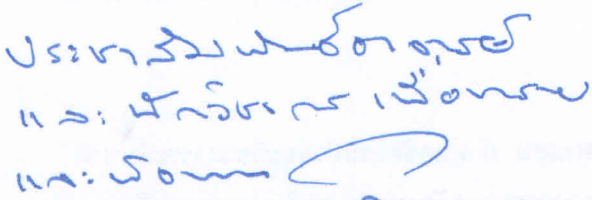 ประชาสัมพันธ์อาจารย์
และนักวิชาการ เพื่อทราบ
และ